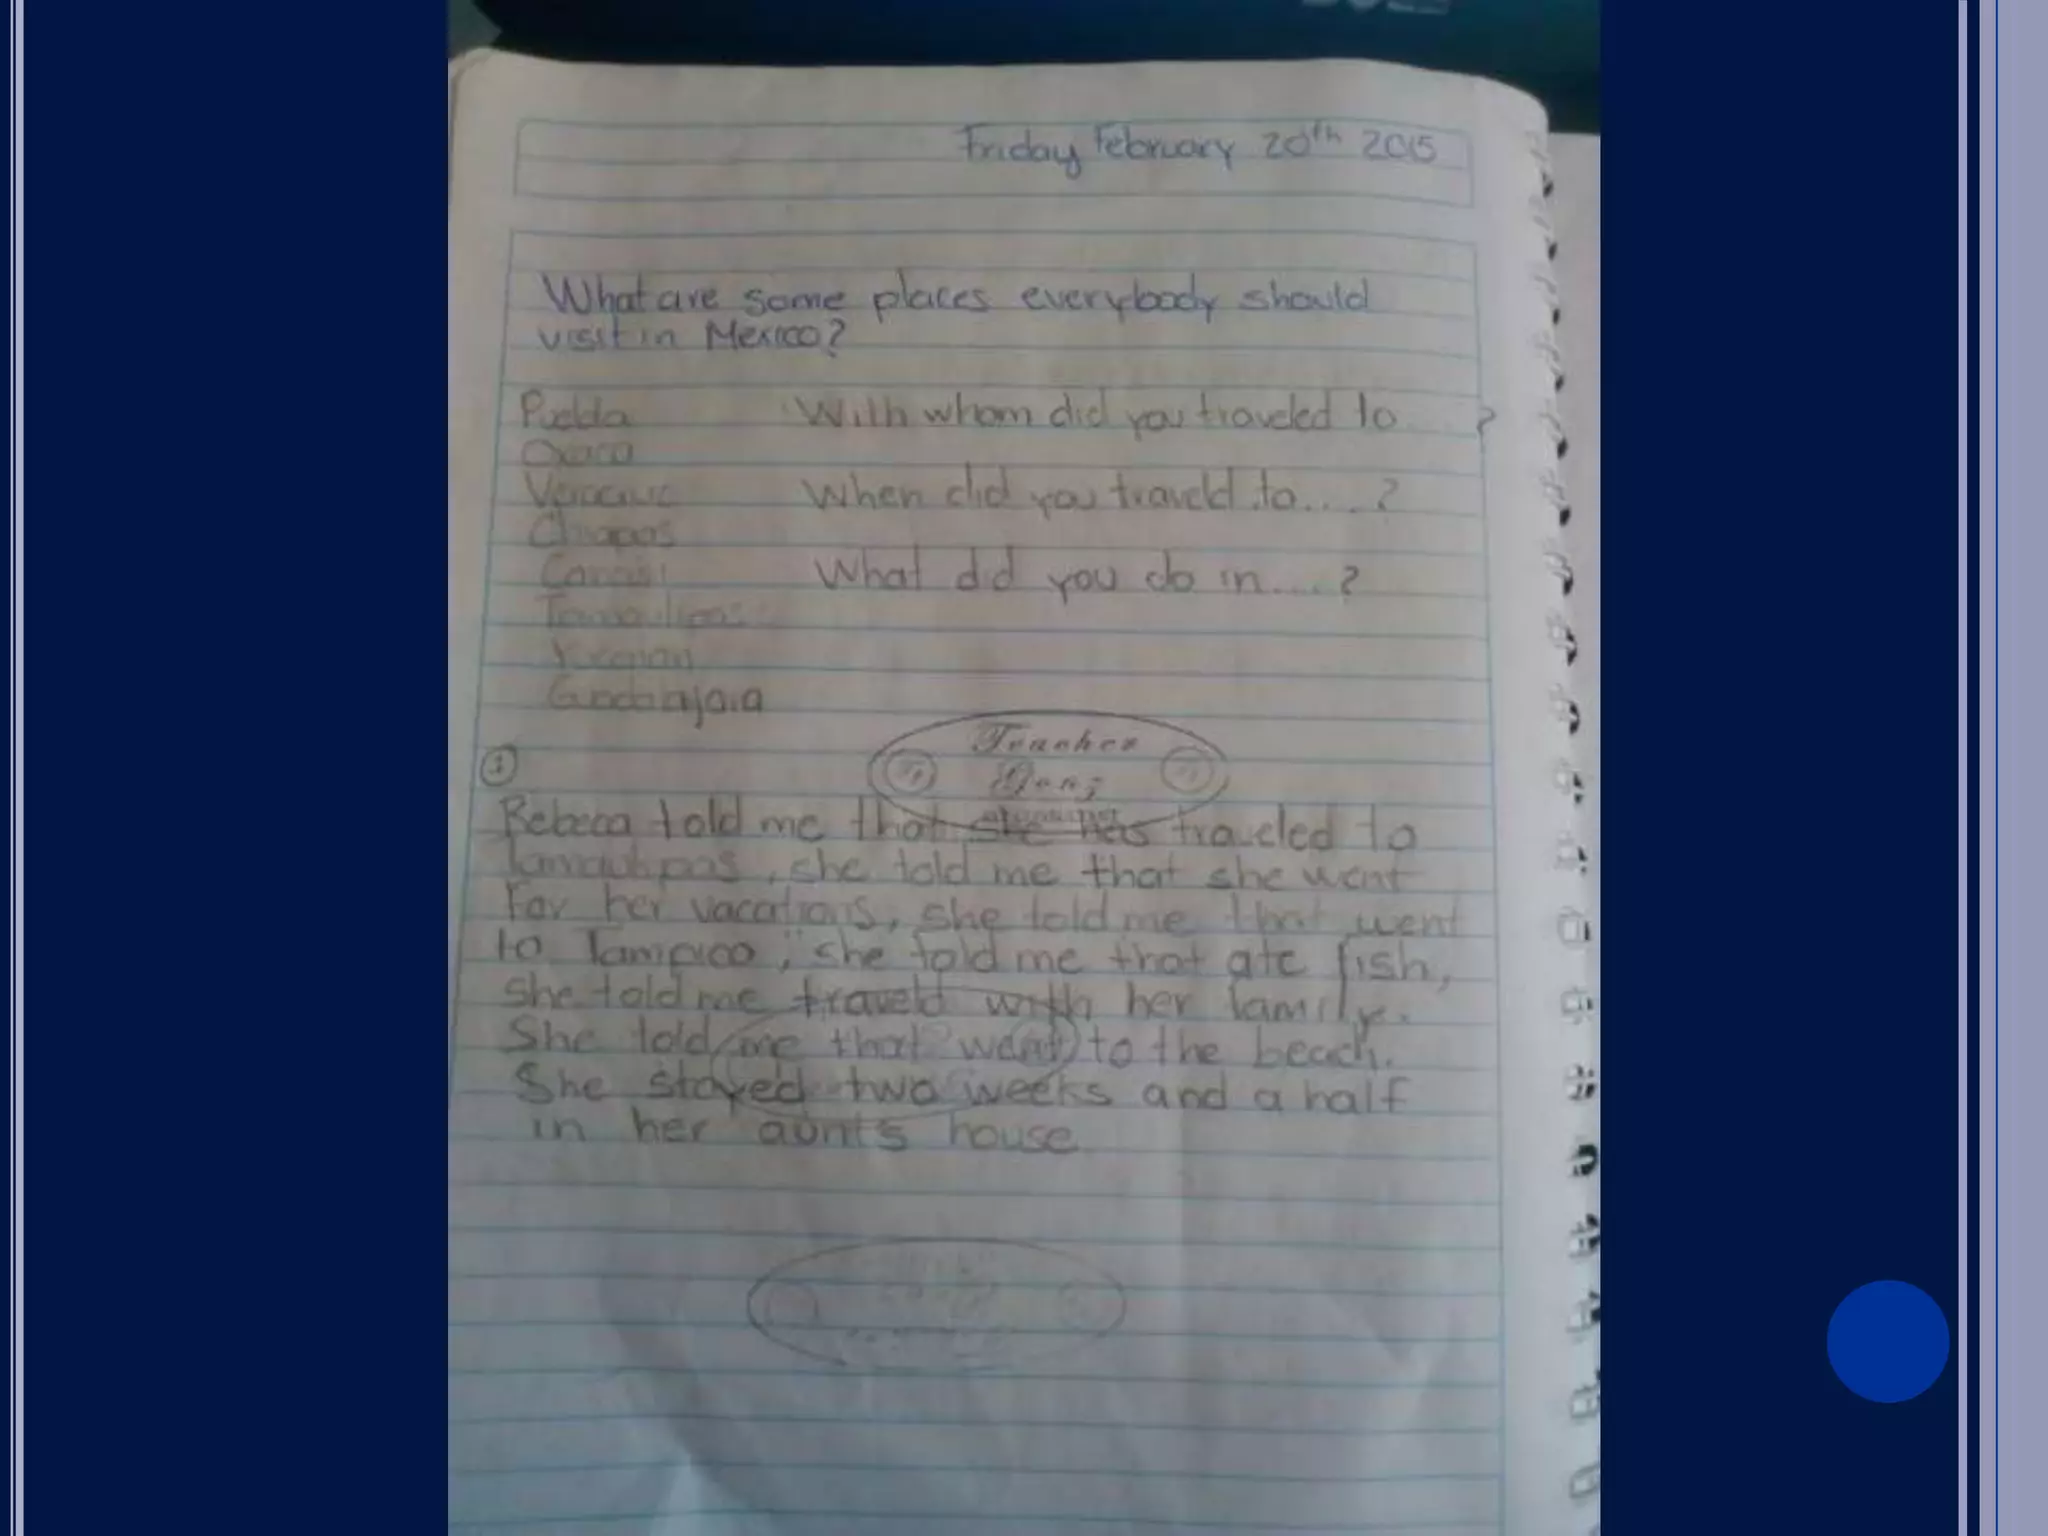 Friday February 20th 2015
What are some places everybody should
visit in Mexico?
Puebla
With whom did you traveled to ?
Oxaca
Veracruz
When did you traveld to....?
Chiapas
Cancun
What did you do in....?
Tamaulipas
Yucatan
Guadalajara
Teacher
1
Rebeca told me that she has traveled to
Tamaulipas, she told me that she went
For her vacations, she told me that went
to Tampico, she told me that ate fish,
she told me traveld with her family.
She told me that went to the beach.
She stayed two weeks and a half
in her aunt's house